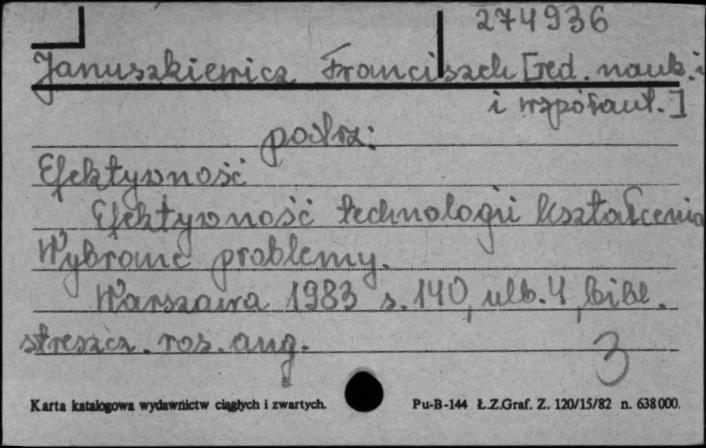 274936
Januszkiewicz Franciszek [red. nauk. i
i współaut.]
patrz:
Efektywność
Efektywność technologii kształcenia
Wybrane problemy.
Warszawa 1983 s. 140, ulb. 4, bibl.
streszcz. ros. ang.
3
Karta katalogowa wydawnictw ciągłych i zwartych. Pu-B-144 Ł.Z.Graf. Z. 120/15/82 n. 638000.